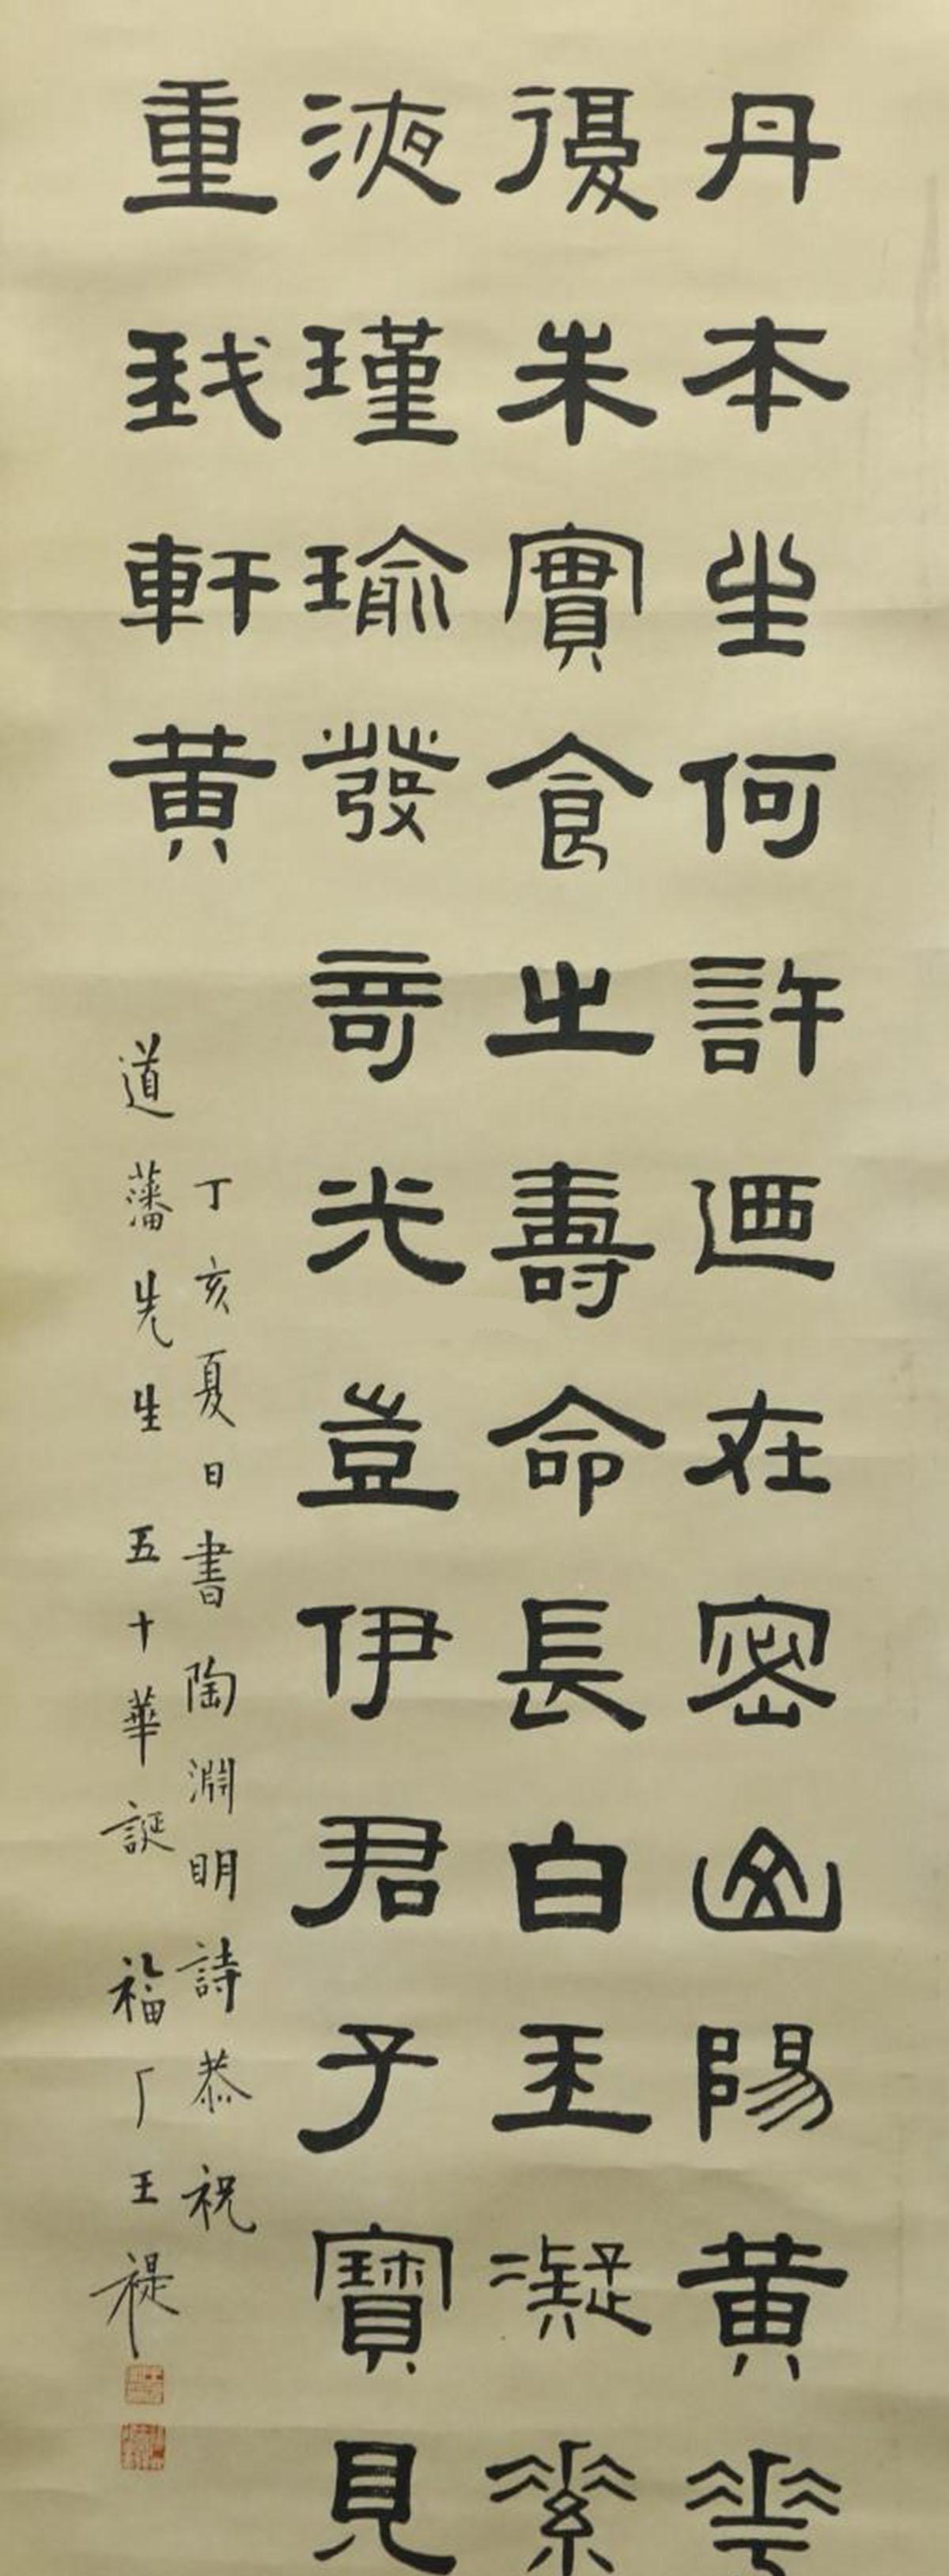 丹本生何許迺在密山陽黃華
復朱實食之壽命長白玉凝素
液瑾瑜發奇光豈伊君子寶見
重我軒黃
丁亥夏日書陶淵明詩恭祝
道藩先生五十華誕 福厂王禔